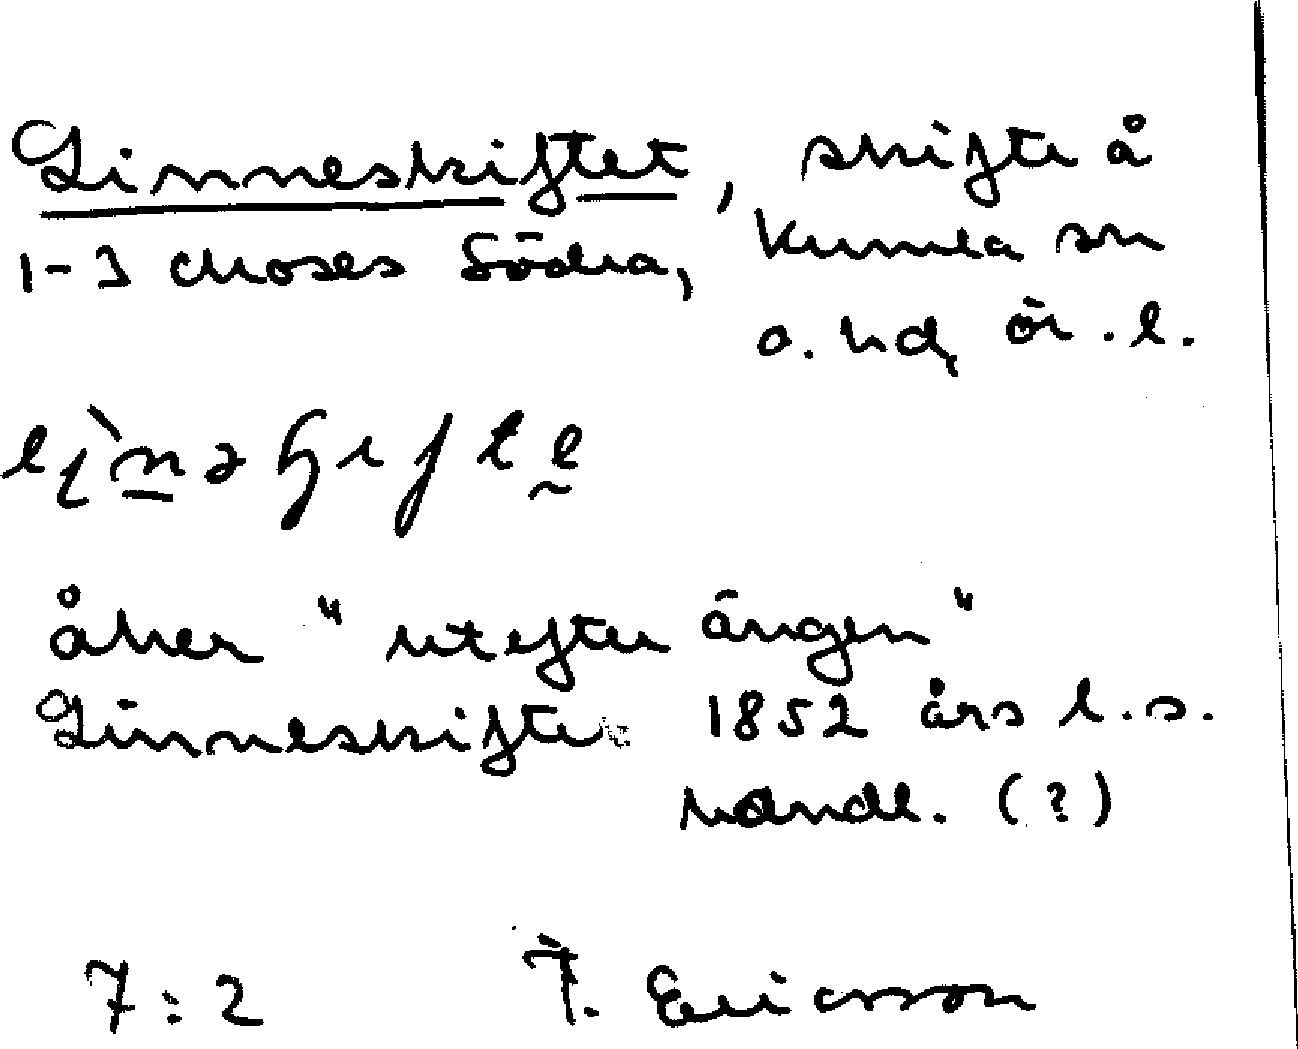 Linneskiftet, skifte å
1-3 Mosås Södra, Kumla sn
o. hd, ör. l.
åker "utefter ängen"
Linneskifte 1852 års l.s.
handl. (?)
7:2 T. Ericsson